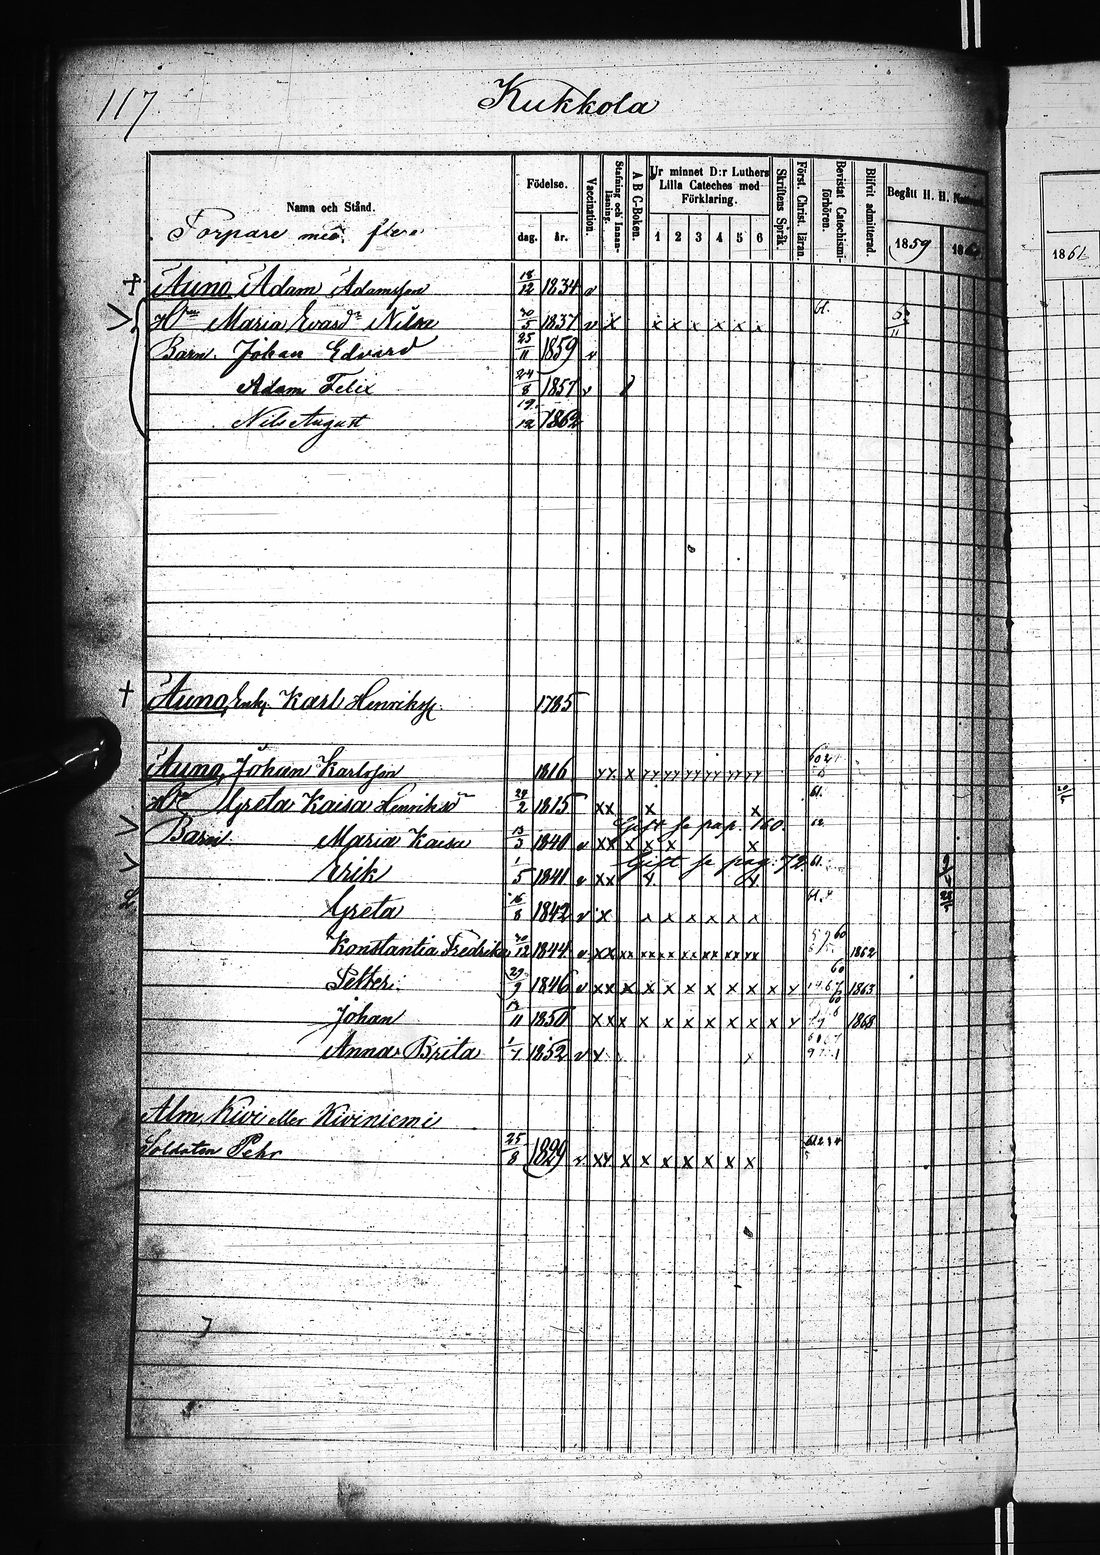 117
Kukkola
Namn och Stånd.
Torpare med flera
Födelse.
dag. år.
Vaccination.
Stafning och Innanläsning.
A B C-Boken.
Ur minnet D:r Luthers Lilla Cateches med Förklaring.
1 2 3 4 5 6
Skriftens Språk
Först. Christ. läran.
Bevistat Catechismiförhören.
Blifvit admitterad.
Begått H. H. Nattvard
1859 186
1861
+ Auno, Adam Adamsson 18/12 1834 v
H:n Maria Evasd:r Nilsu 30/5 1837 v x x x x x x x 61.
Barn. Johan Edvard 25/11 1859 v
Adam Felix 24/8 1857 v
Nils August 19/12 1862
† Auno, Enkl. Karl Henrikss. 1785
Auno, Johan Karlsson 1816
H:n Greta Kaisa Henriksd:r 29/2 1815 xx x x 61.
Gift se pag. 160.
Barn. Maria Kaisa 13/3 1840 v xx x x x x 62
Gift se pag. 72.
Erik 1/5 1841 v xx x x 61.
Greta 16/8 1842 v x x x x x x x
Konstantia Fredrika 30/12 1844 v xx xx xx xx xx xx xx xx 1862
Petter. 29/9 1846 v xx x x x x x x x x x 1863
Johan 13/11 1850 xx x x x x x x x x x 1868
Anna Brita 1/1 1852 v x x
Alm, Kivi eller Kiviniemi
Soldaten Pehr 25/8 1829 v xx x x x x x x x